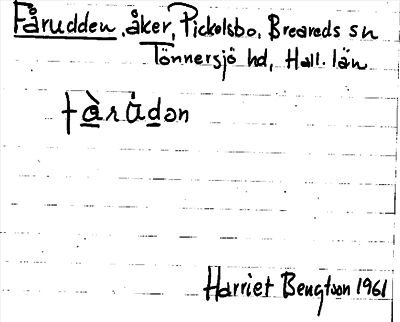 Fårudden, åker, Pickelsbo, Breareds sn
Tönnersjö hd, Hall. län
fàrúdən
Harriet Bengtson 1961